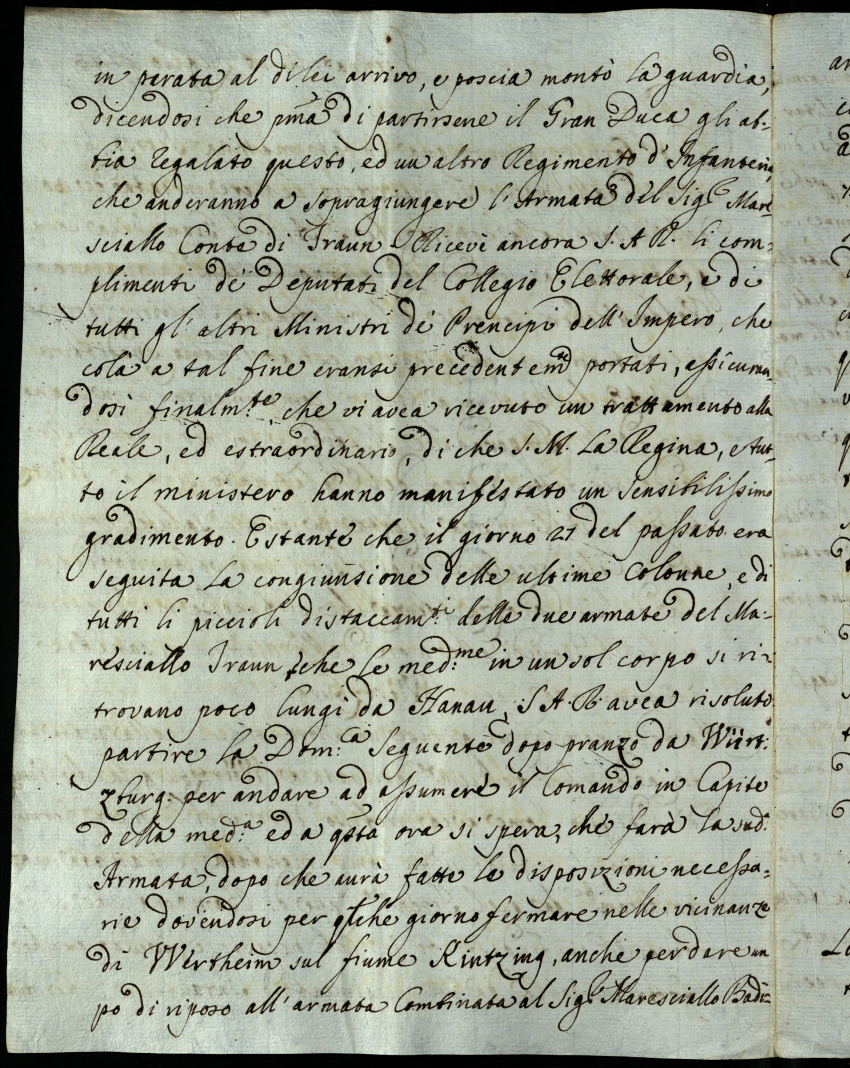 in perata al di lei arrivo, e poscia montò la guardia,
dicendosi che pma di partirsene il Gran Duca gli ab-
bia regalato questo, ed un altro Regimento d'Infanteria
che anderanno a sopragiungere l'Armata del Sigr. Mare-
sciallo Conte di Traun. Ricevè ancora S. A. R. li com-
plimenti de' Deputati del Collegio Elettorale, e di
tutti gl'altri Ministri de' Prencipi dell'Impero, che
colà a tal fine eransi precedentemte portati, assicuran-
dosi finalmte, che vi avea ricevuto un trattamento alla
Reale, ed estraordinario, di che S. M. la Regina, e tut-
to il ministero hanno manifestato un sensibilissimo
gradimento. Estante che il giorno 27 del passato era
seguita la congiunsione delle ultime Colonne, e di
tutti li piccioli distaccamti. delle due armate del Ma-
resciallo Traun, che le med:me in un sol corpo si ri-
trovano poco lungi da Hanau, S. A. R. avea risoluto
partire la Dom:ca seguente dopo pranzo da Würt-
zburg: per andare ad assumere il Comando in Capite
della med:a ed a qsta ora si spera, che farà la sud:a
Armata, dopo che aurà fatte le disposizioni necessa-
rie dovendosi per qlche giorno fermare nelle vicinanze
di Wirtheim sul fiume Kintzing, anche per dare un
po di riposo all'armata Combinata al Sigr. Maresciallo Badi-